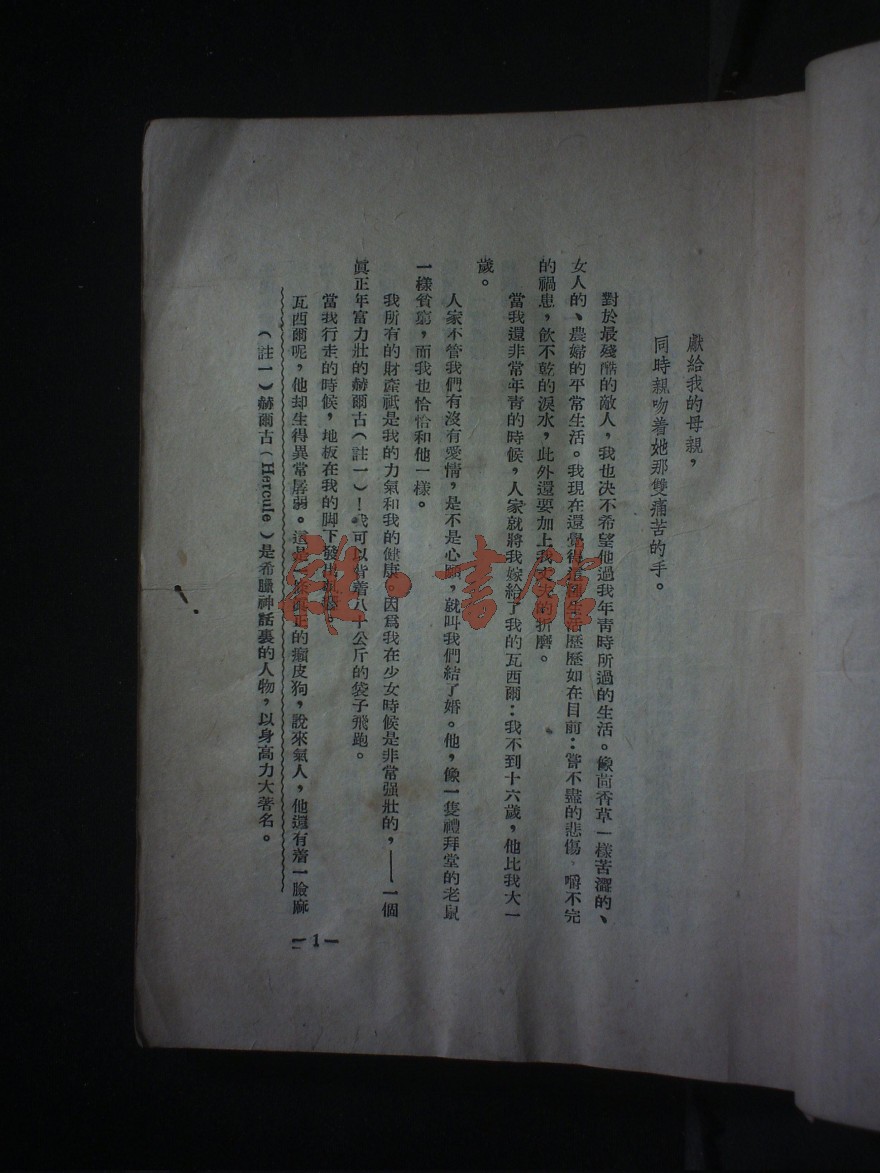 獻給我的母親，
同時親吻着她那雙痛苦的手。
對於最殘酷的敵人，我也决不希望他過我年青時所過的生活。像茴香草一樣苦澀的、
女人的、農婦的平常生活。我現在還覺得這種生活歷歷如在目前：嘗不盡的悲傷、嚼不完
的禍患，飲不乾的淚水，此外還要加上我丈夫的折磨。
當我還非常年青的時候，人家就將我嫁給了我的瓦西爾：我不到十六歲，他比我大一
歲。
人家不管我們有沒有愛情，是不是心願，就叫我們結了婚。他，像一隻禮拜堂的老鼠
一樣貧窮，而我也恰恰和他一樣。
我所有的財產祇是我的力氣和我的健康，因爲我在少女時候是非常强壯的，——一個
眞正年富力壯的赫爾古（註一）！我可以背着八十公斤的袋子飛跑。
當我行走的時候，地板在我的脚下發出
瓦西爾呢，他却生得異常孱弱。這是一條眞正的癩皮狗，說來氣人，他還有着一臉麻
（註一）赫爾古（Hercule）是希臘神話裏的人物，以身高力大著名。
— 1 —
雜·書館